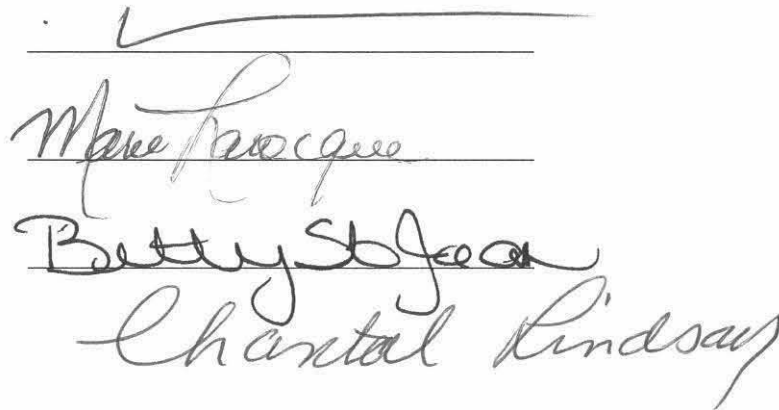 Marie Larocque
Betty St Jean
Chantal Lindsay